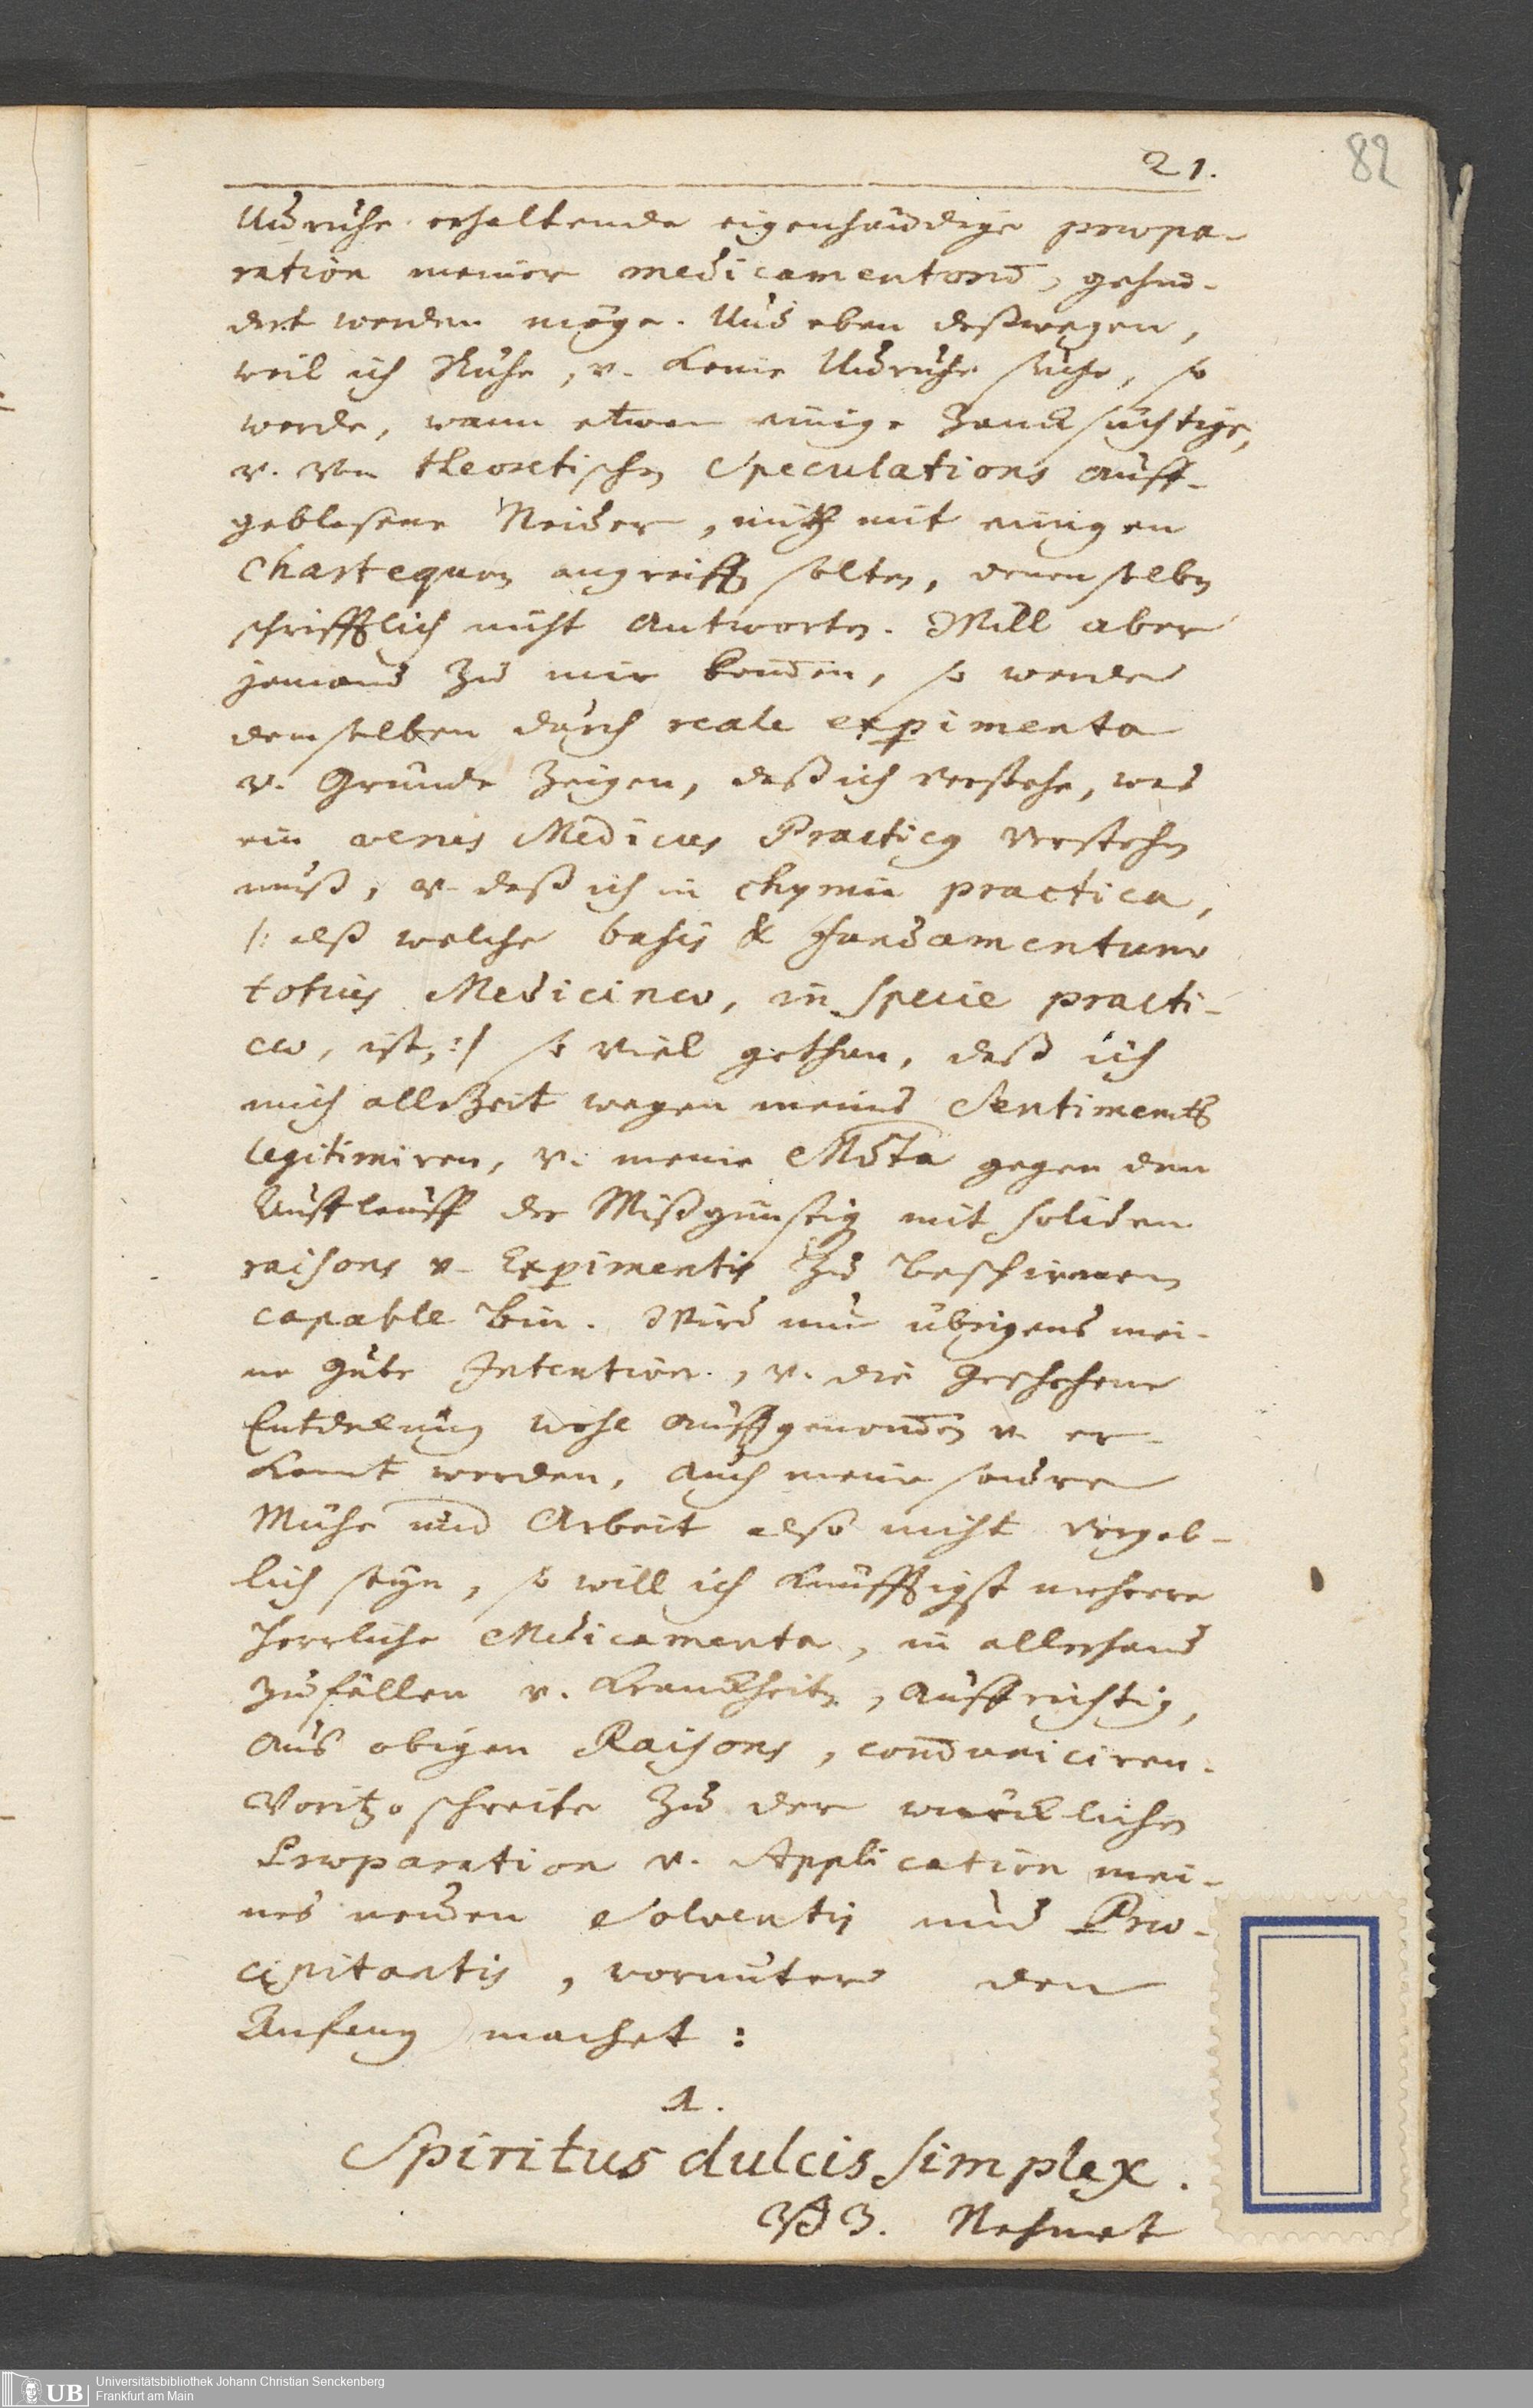 82
21.
Unruhe erhaltende eigenhändige præpa-
ration meiner medicamentorū, gehin-
dert werden möge. Und eben deßwegen,
weil ich Ruhe, v. keine Unruhe suche, so
werde, wann etwan einige Zancksüchtige,
v. von theoretischen Speculations auff-
geblasene Neider, mich mit einigen
Chartequen angreiffen solten, denenselben
schrifftlich nicht Antworten. Will aber
jemand zu mir kom̄en, so werde
demselben durch reale experimenta
v. Gründe zeigen, daß ich verstehe, was
ein verus Medicus Practicus verstehen
muß, v. daß ich in chymia practica,
/: alß welche basis & fundamentum
totius Medicinæ, in Specie practi-
cæ, ist, :/ so viel gethan, daß ich
mich allezeit wegen meines Sentiments
legitimiren, v. meine Mdta gegen den
Aufflauff der Mißgünstigen mit soliden
raisons v. Experimentis zu beschirmen
capable bin. Wird nun übrigens mei-
ne gute Intention, v. die geschehene
Entdeckung wohl auffgenom̄en v. er-
kant werden, auch meine saure
Mühe und Arbeit also nicht vergeb-
lich seyn, so will ich künfftigst mehrere
herrliche Medicamenta, in allerhand
Zufällen v. Kranckheiten, auffrichtig,
aus obigen Raisons, com̄uniciren.
Voritzo schreite zu der würcklichen
Præparation v. Application mei-
nes neuen Solventis und Præ-
cipitantis, worunter den
Anfang machet:
1.
Spiritus dulcis simplex.
Nehmet
Universitätsbibliothek Johann Christian Senckenberg
Frankfurt am Main
UB